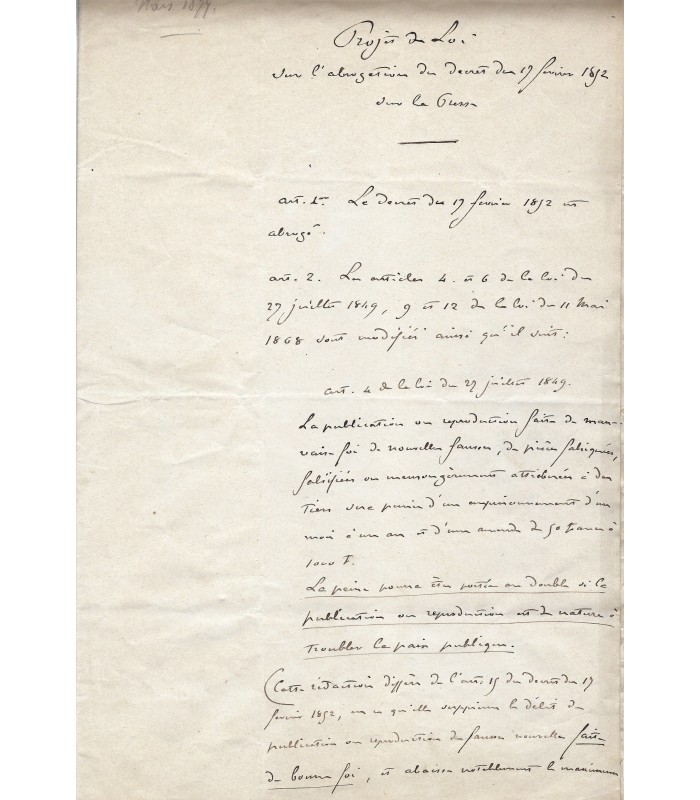 Mars 1877.
Projet de Loi
sur l'abrogation du decret du 17 fevrier 1852
sur la Presse
art. 1er Le decret du 17 fevrier 1852 est
abrogé.
art. 2. Les articles 4 et 6 de la loi du
27 juillet 1849, 9 et 12 de la loi du 11 Mai
1868 sont modifiés ainsi qu'il suit:
art. 4 de la loi du 27 juillet 1849.
La publication ou reproduction faite de mau-
vaise foi de nouvelles fausses, de pièces fabriquées,
falsifiées ou mensongèrement attribuées à des
tiers sera punie d'un emprisonnement d'un
mois à un an et d'une amende de 50 francs à
1000 f.
La peine pourra être portée au double si la
publication ou reproduction est de nature à
troubler la paix publique.
(Cette rédaction diffère de l'art. 15 du decret du 17
fevrier 1852, en ce qu'elle supprime le délit de
publication ou reproduction de fausses nouvelles faite
de bonne foi, et abaisse notablement le maximum